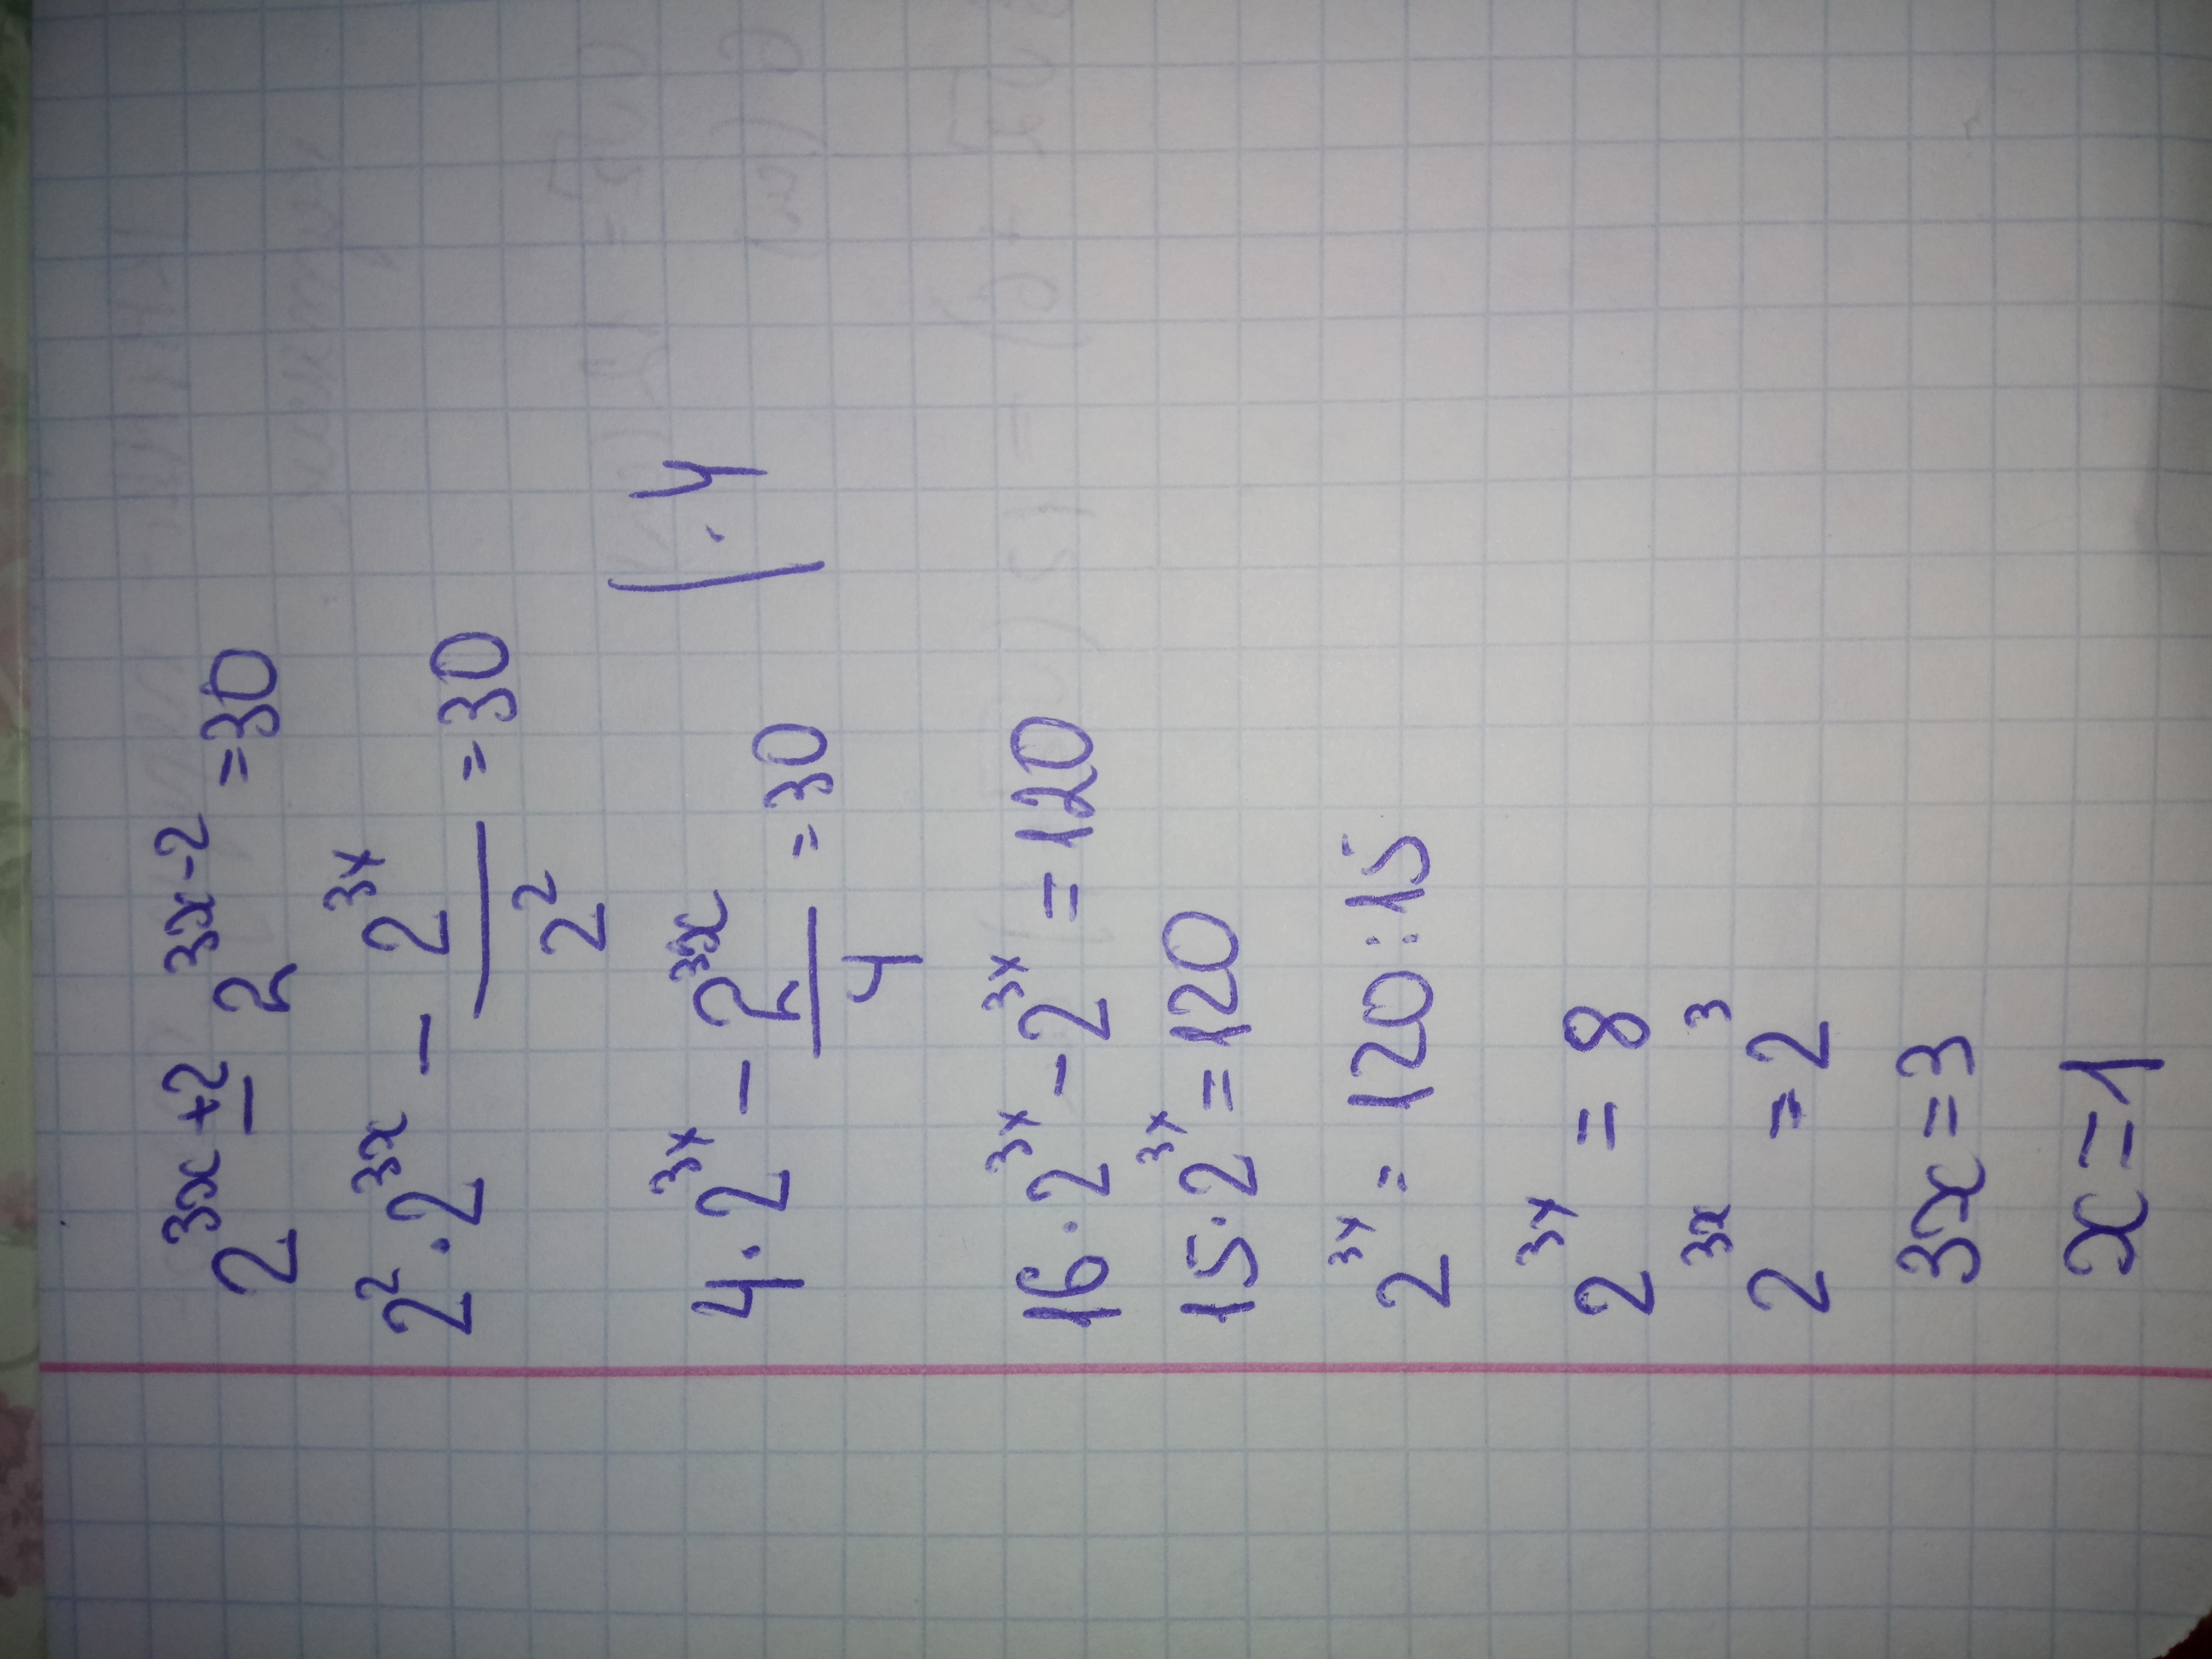 2^{3x+2} - 2^{3x-2} = 30
2^2 · 2^{3x} - \frac{2^{3x}}{2^2} = 30
4 · 2^{3x} - \frac{2^{3x}}{4} = 30 | · 4
16 · 2^{3x} - 2^{3x} = 120
15 · 2^{3x} = 120
2^{3x} = 120 : 15
2^{3x} = 8
2^{3x} = 2^3
3x = 3
x = 1